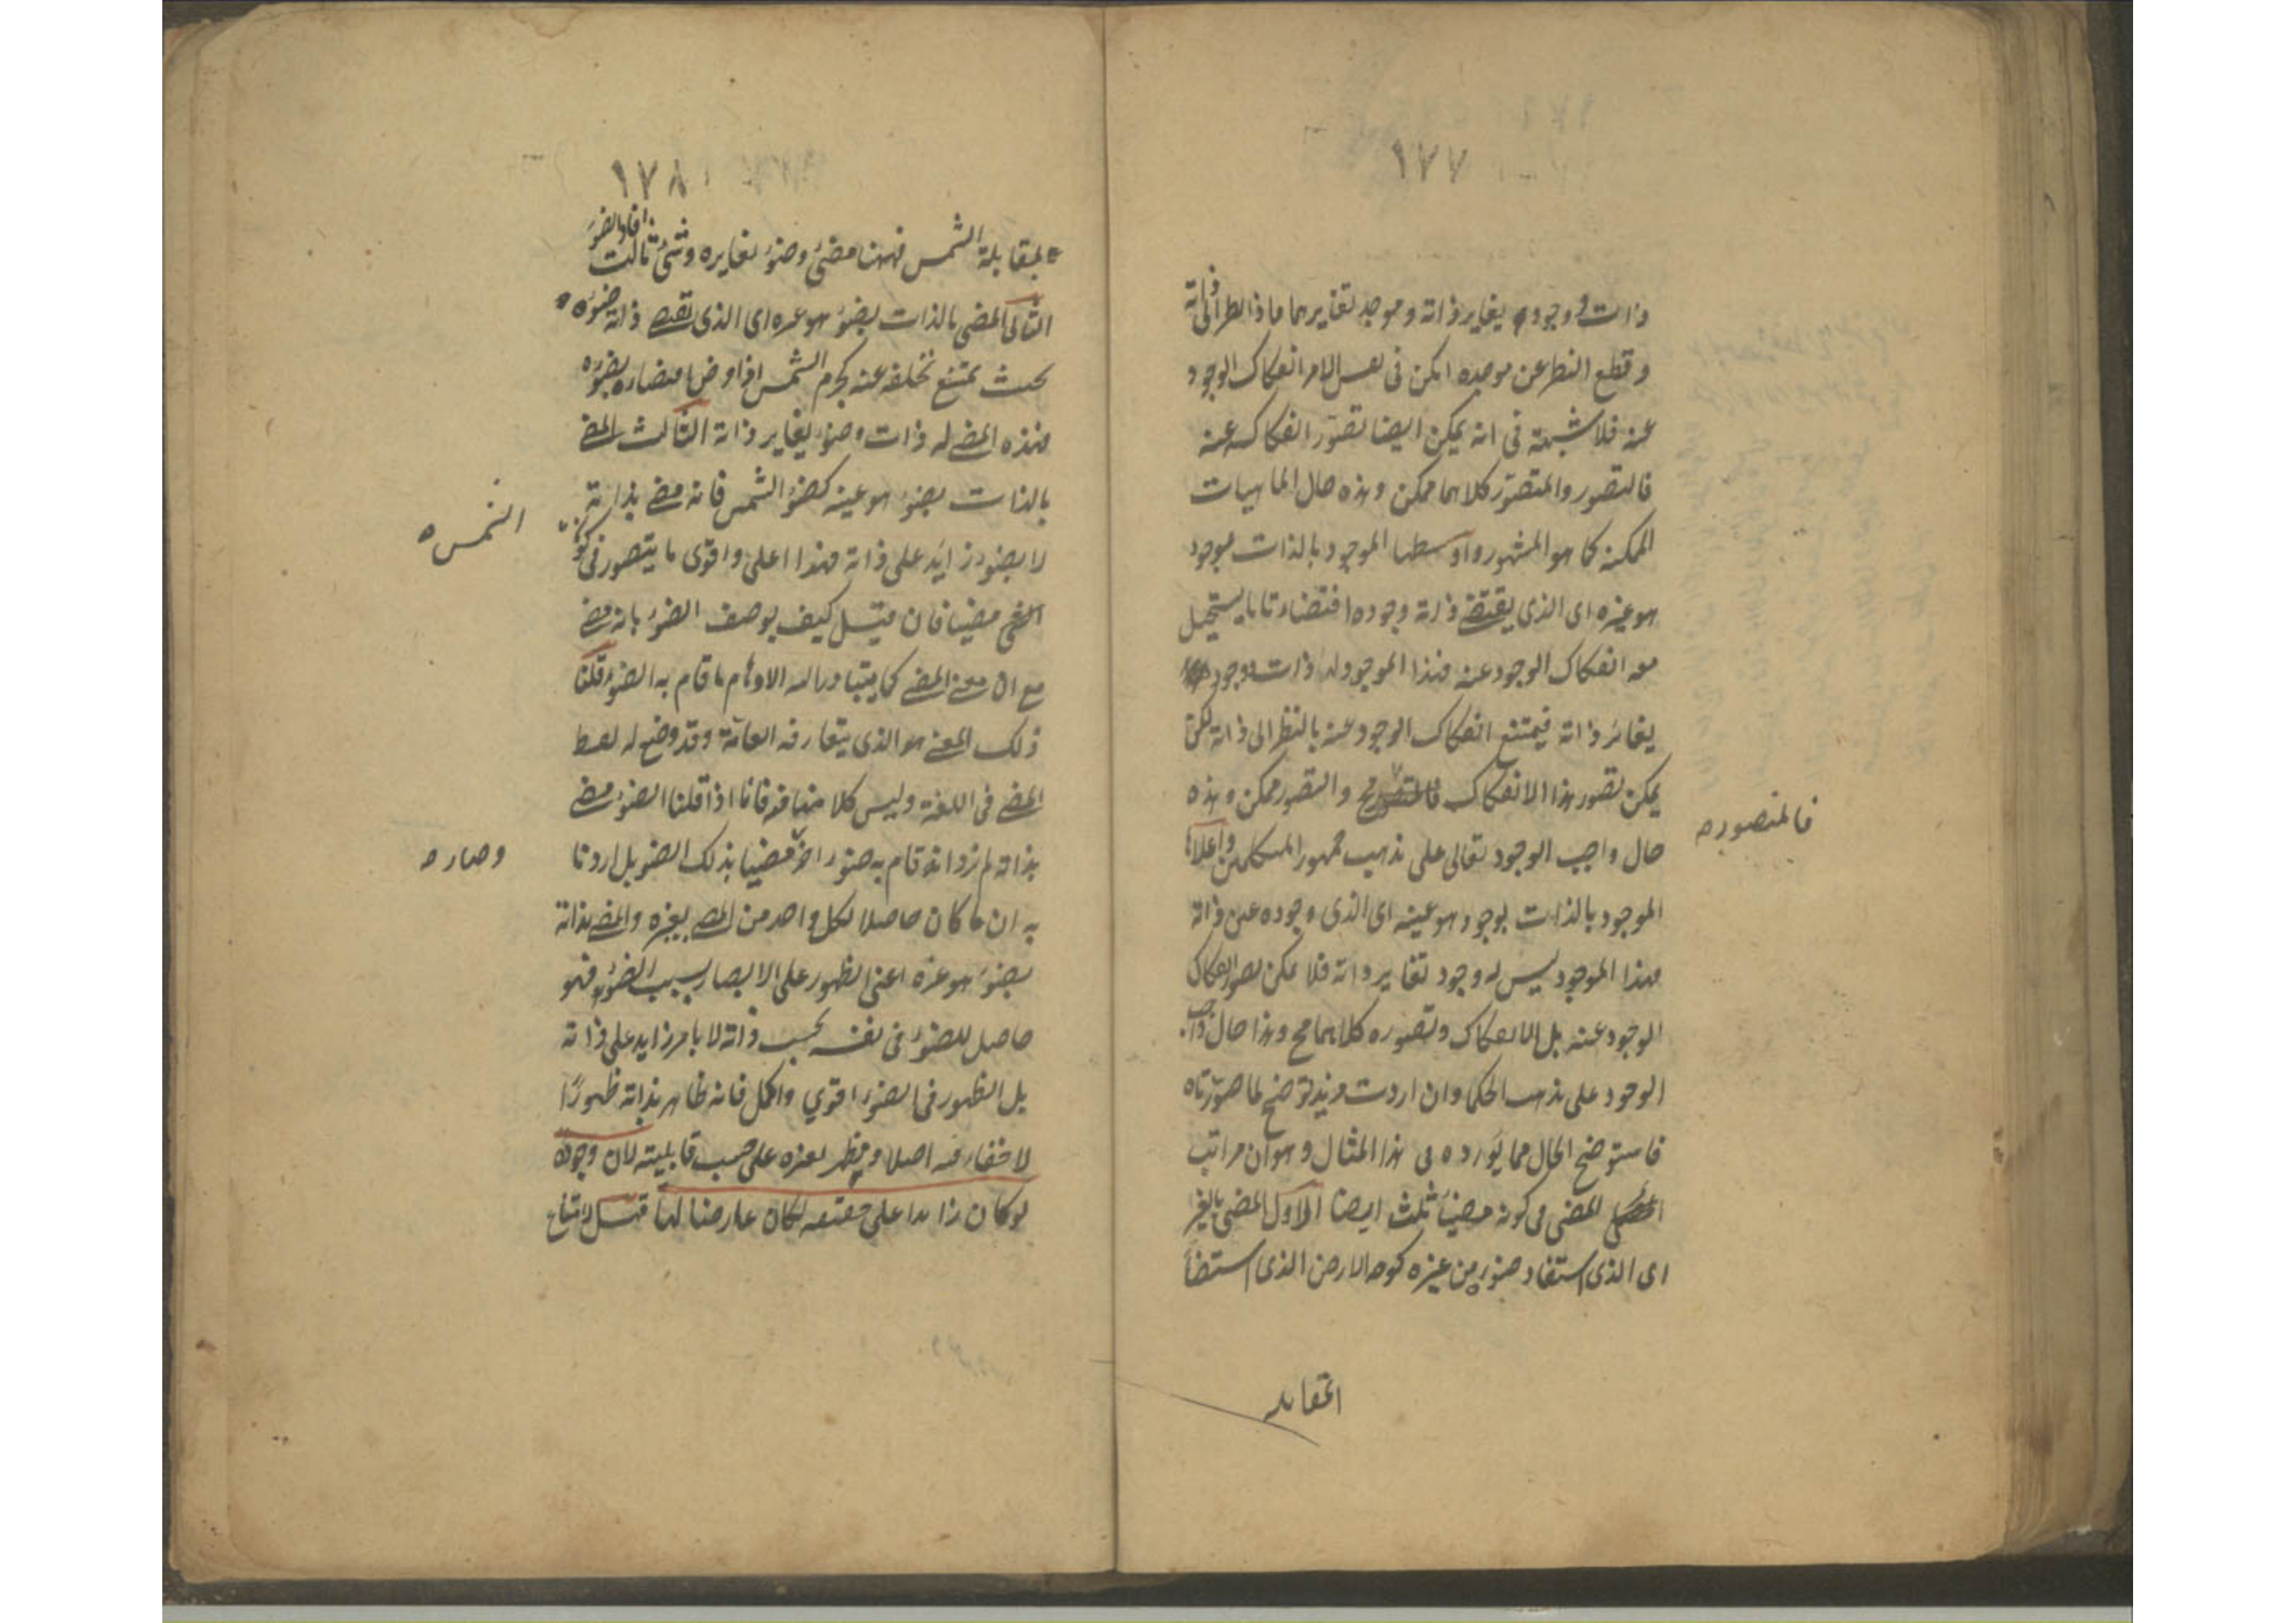 ١٧٧
ذات ووجود يغاير ذاته وموجد يغايرهما فاذا نظر الى ذاته
وقطع النظر عن موجده امكن فى نفس الامر انفكاك الوجود
عنه فلا شبهة فى انه يمكن ايضا تصور انفكاكه عنه
فالتصور والمتصور كلاهما ممكن وهذه حال الماهيات
الممكنة كما هو المشهور واوسطها الموجود بالذات بوجود
هو غيره اى الذى يقتضى ذاته وجوده اقتضاء تاما يستحيل
معه انفكاك الوجود عنه فهذا الموجود له ذات ووجود
يغاير ذاته فيمتنع انفكاك الوجود عنه بالنظر الى ذاته لكن
يمكن تصور هذا الانفكاك فالمتصور مح والتصور ممكن وهذه
فالمتصور صح
حال واجب الوجود تعالى على مذهب جمهور المتكلمين واعلاها
الموجود بالذات بوجود هو عينه اى الذى وجوده عين ذاته
فهذا الموجود ليس له وجود يغاير ذاته فلا يمكن تصور انفكاك
الوجود عنه بل الانفكاك وتصوره كلاهما مح وهذا حال واجب
الوجود على مذهب الحكما وان اردت مزيد توضيح لما صورناه
فاستوضح الحال مما نورده فى هذا المثال وهو ان مراتب
المضى فى كونه مضيئا ثلث ايضا الاول المضى بالغير
اى الذى استفاد ضوءه من غيره كوجه الارض الذى استضأ
بمقابله
١٧٨
بمقابلة الشمس فههنا مضئ وضوء يغايره وشئ ثالث افاد الضوء
الثانى المضى بالذات بضوء هو غيره اى الذى يقتضى ذاته ضوءه
بحيث يمتنع تخلفه عنه كجرم الشمس اذا فرض اقتضاءه لضوءه
فهذه المضى له ذات وضوء يغاير ذاته الثالث المضى
بالذات بضوء هو عينه كضوء الشمس فانه مضى بذاته
الشمس
لا بضوء زايد على ذاته فهذا اعلى واقوى ما يتصور فى كون
الشئ مضيئا فان قيل كيف يوصف الضوء بانه مضى
مع ان معنى المضى كما يتبادر اليه الاوهام ما قام به الضوء قلنا
ذلك المعنى هو الذى يتعارفه العامة وقد وضع له لفظ
المضى فى اللغة وليس كلامنا فيه فانا اذا قلنا الضوء مضى
بذاته لم نرد انه قام به ضوء اخر مضيئا بذلك الضوء بل اردنا
وصار صح
به ان ما كان حاصلا لكل واحد من المضى بغيره والمضى بذاته
بضوء هو غيره اعنى الظهور على الابصار بسبب الضوء فهو
حاصل للضوء فى نفسه بحسب ذاته لا بامر زايد على ذاته
بل الظهور فى الضوء اقوى واكمل فانه ظاهر بذاته ظهورًا
لا خفاء فيه اصلا ومظهر لغيره على حسب قابليته لان وجوده
لو كان زايدا على حقيقته لكان عارضا لها قيل لامتناع